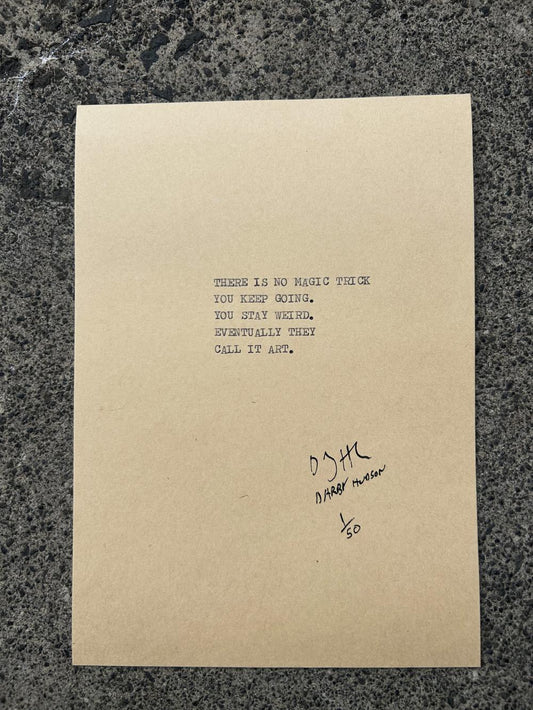 THERE IS NO MAGIC TRICK
YOU KEEP GOING.
YOU STAY WEIRD.
EVENTUALLY THEY
CALL IT ART.
DJH
DARBY HUDSON
1/50